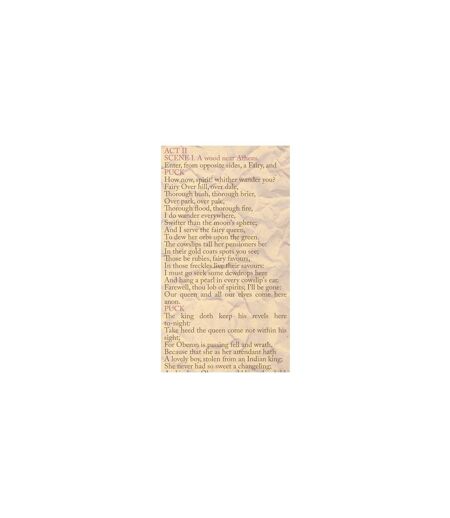 ACT II
SCENE I. A wood near Athens.
Enter, from opposite sides, a Fairy, and
PUCK
How now, spirit! whither wander you?
Fairy Over hill, over dale,
Thorough bush, thorough brier,
Over park, over pale,
Thorough flood, thorough fire,
I do wander everywhere,
Swifter than the moon's sphere;
And I serve the fairy queen,
To dew her orbs upon the green.
The cowslips tall her pensioners be:
In their gold coats spots you see;
Those be rubies, fairy favours,
In those freckles live their savours:
I must go seek some dewdrops here
And hang a pearl in every cowslip's ear.
Farewell, thou lob of spirits; I'll be gone:
Our queen and all our elves come here
anon.
PUCK
The king doth keep his revels here
to-night:
Take heed the queen come not within his
sight;
For Oberon is passing fell and wrath,
Because that she as her attendant hath
A lovely boy, stolen from an Indian king;
She never had so sweet a changeling;